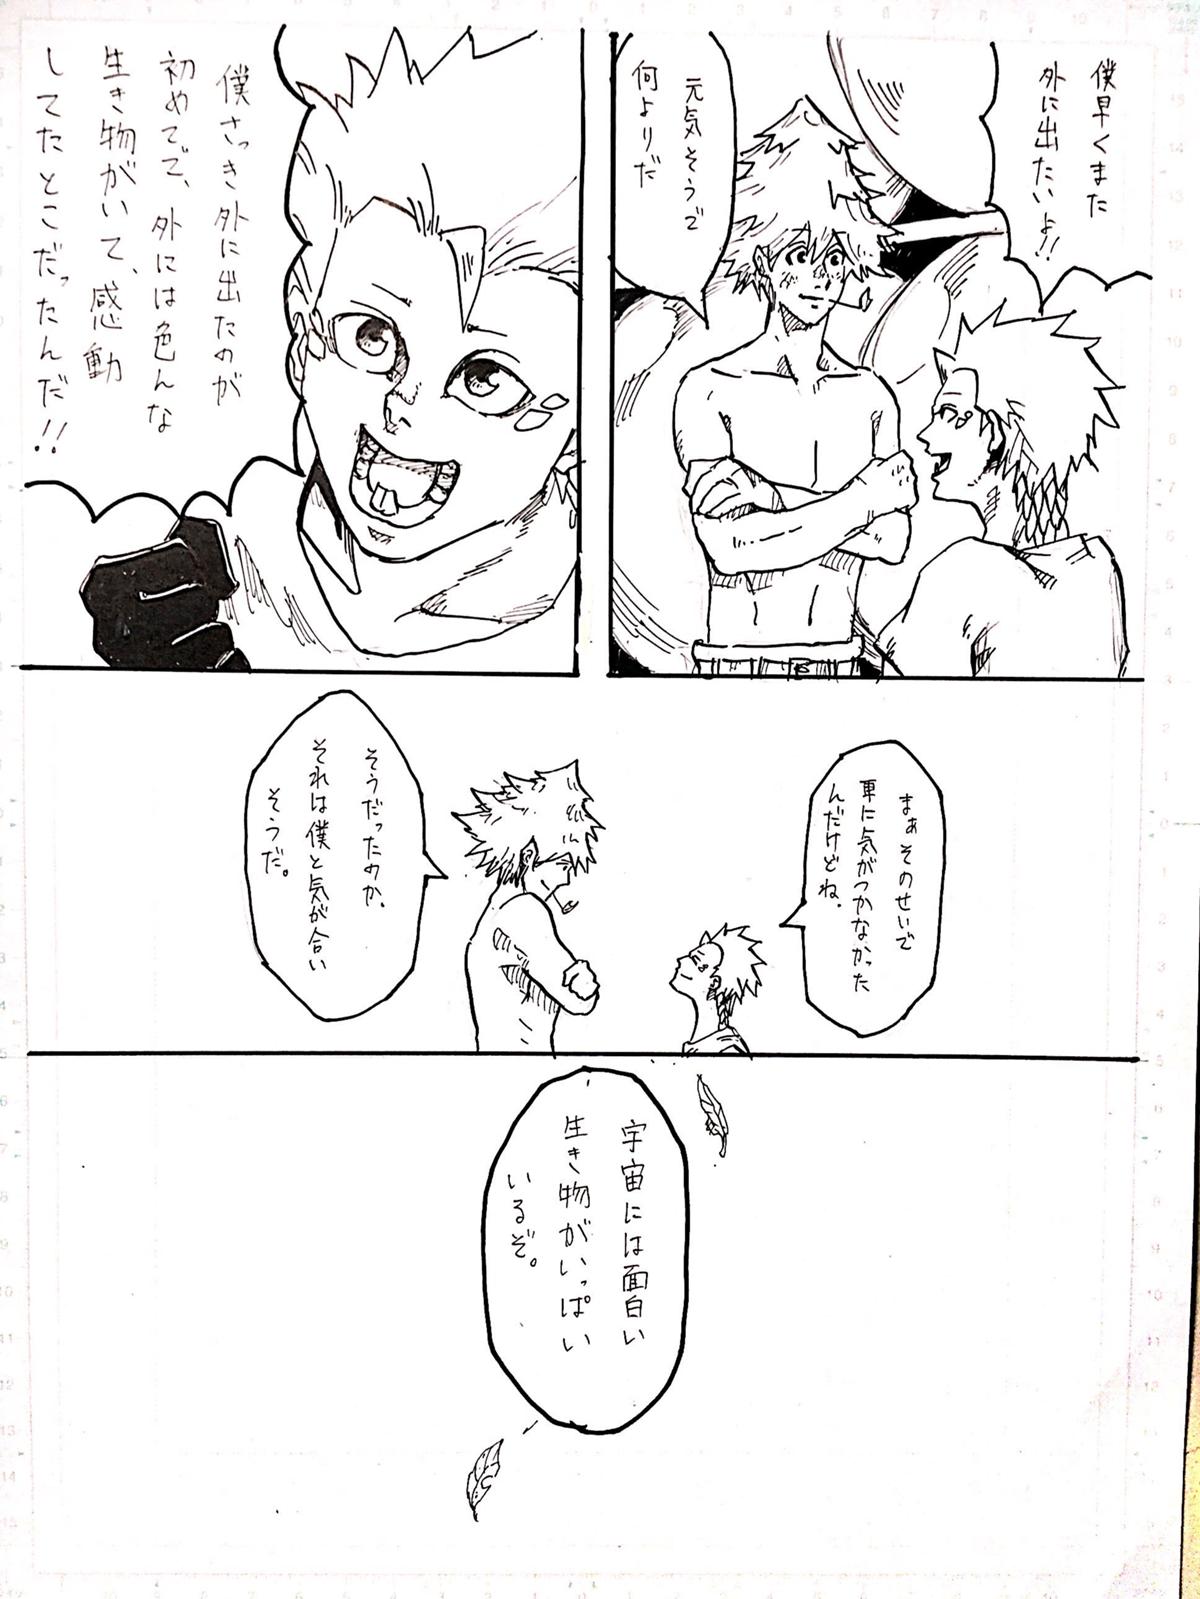 僕早くまた
外に出たいよ!!
元気そうで
何よりだ
僕さっき外に出たのが
初めてで、外には色んな
生き物がいて、感動
してたとこだったんだ!!
まぁそのせいで
車に気がつかなかった
んだけどね。
そうだったのか。
それは僕と気が合い
そうだ。
宇宙には面白い
生き物がいっぱい
いるぞ。